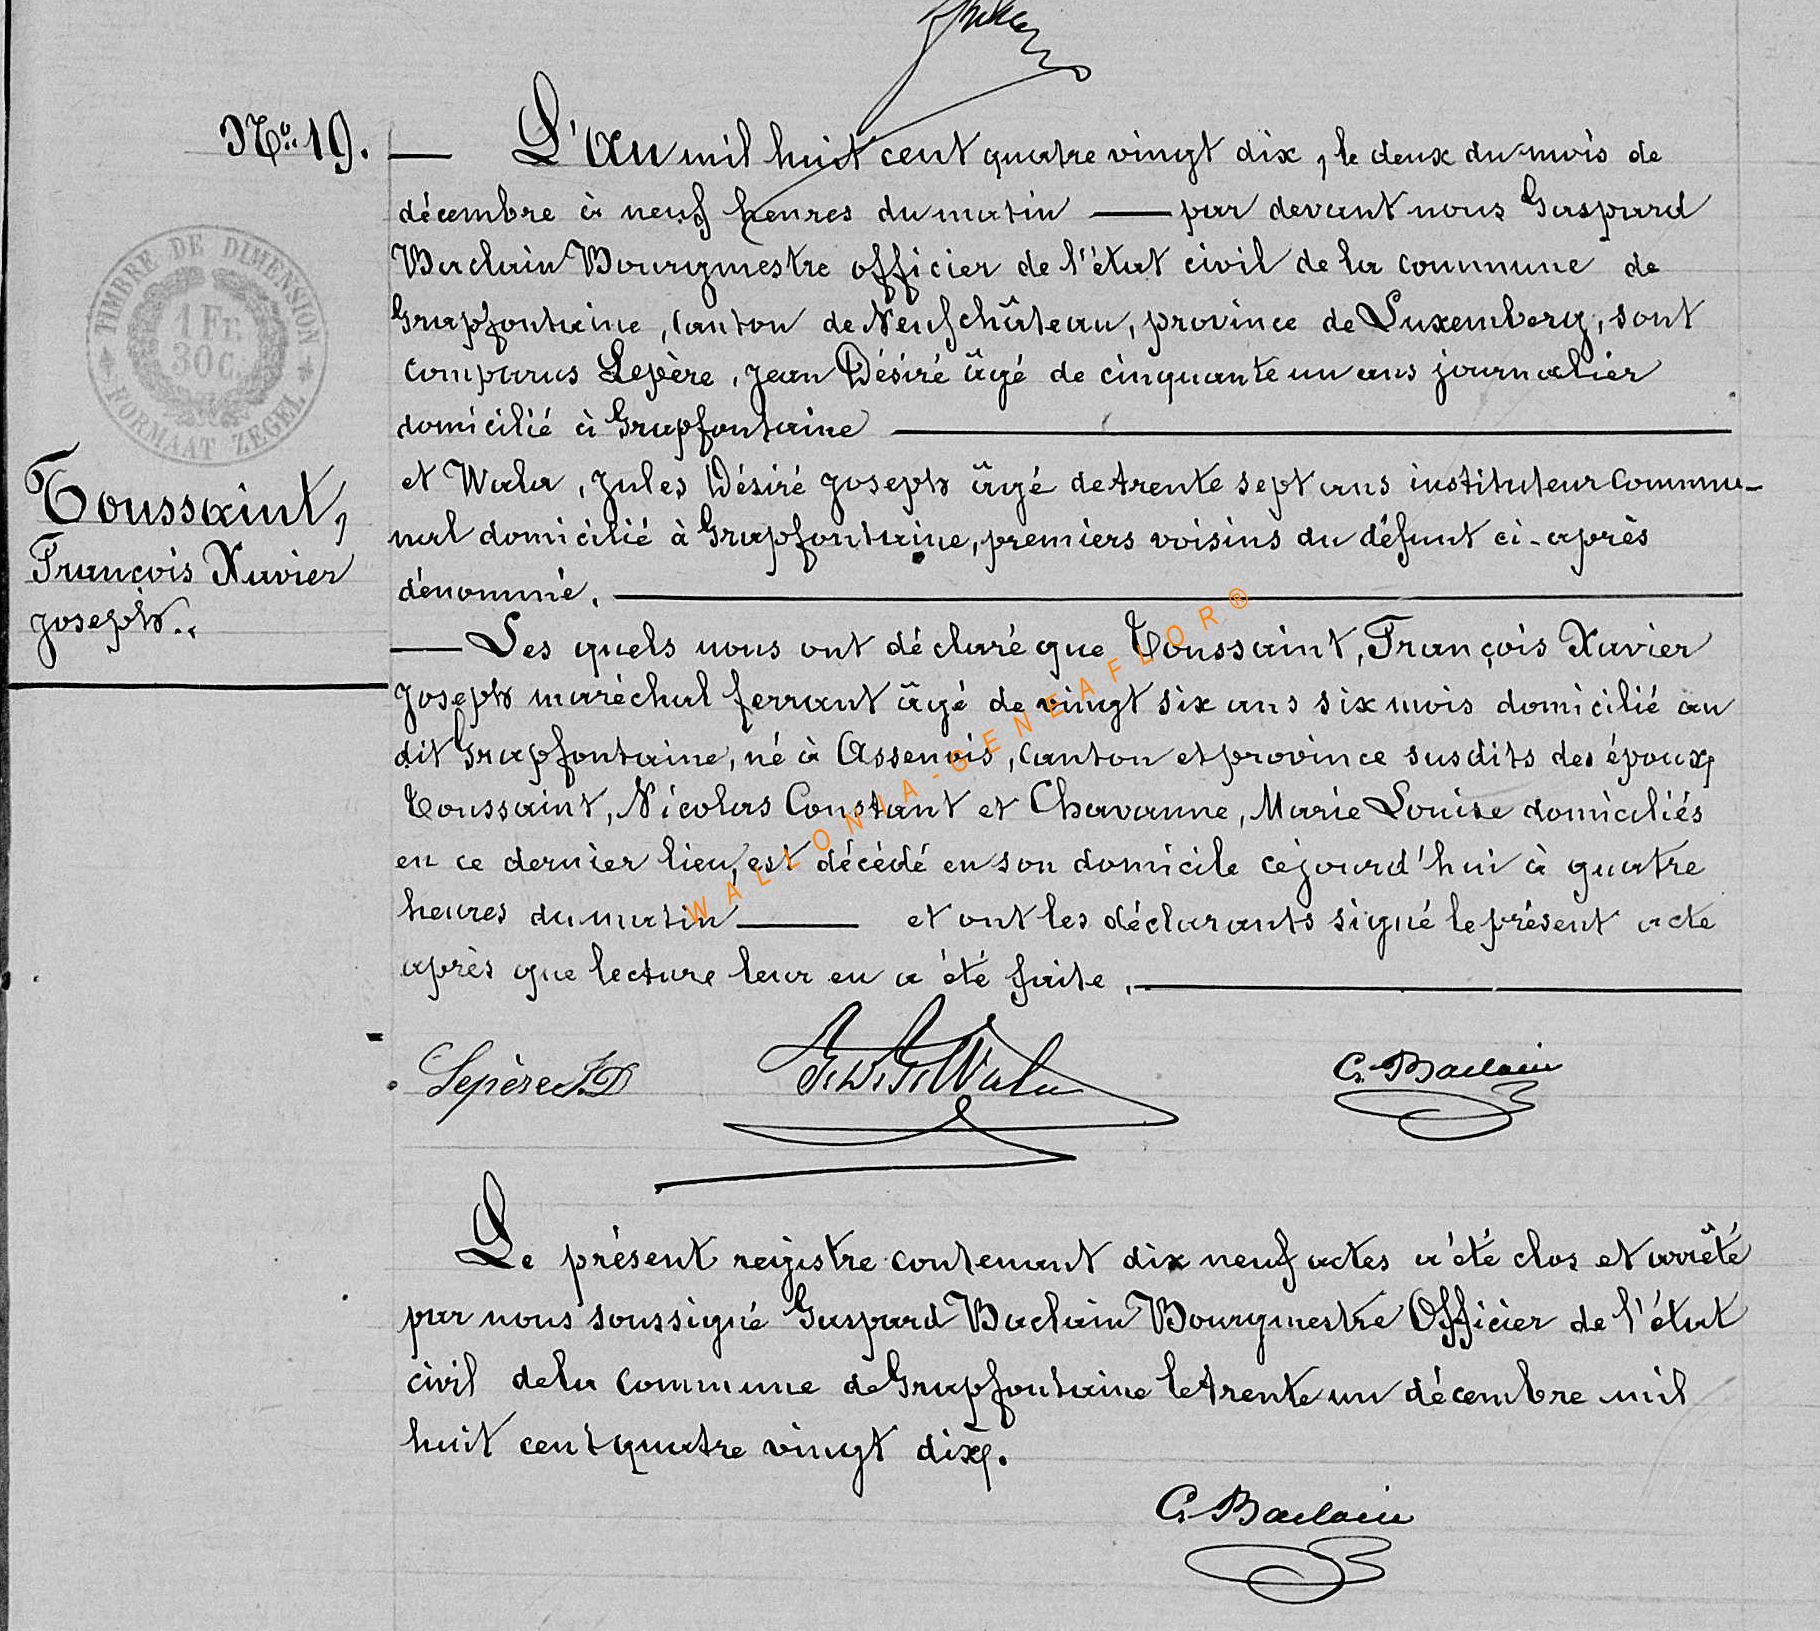 N° 19.
L'An mil huit cent quatre vingt dix, le deux du mois de
décembre à neuf heures du matin — par devant nous Gaspard
Baclain Bourgmestre officier de l'état civil de la commune de
Grapfontaine, canton de Neufchâteau, province de Luxemberg, sont
comparus Lepère, Jean Désiré âgé de cinquante un ans journalier
domicilié à Grapfontaine
et Wala, Jules Désiré Joseph âgé de trente sept ans instituteur commu-
nal domicilié à Grapfontaine, premiers voisins du défunt ci-après
dénommé.
Toussaint,
François Xavier
Joseph..
Les quels nous ont déclaré que Toussaint, François Xavier
Joseph maréchal ferrant âgé de vingt six ans six mois domicilié au
dit Grapfontaine, né à Assenois, canton et province susdits des époux
Toussaint, Nicolas Constant et Chavanne, Marie Louise domiciliés
en ce dernier lieu, est décédé en son domicile cejourd'hui à quatre
heures du matin — et ont les déclarants signé le présent acte
après que lecture leur en a été faite.
Lepère J.D J.D.J. Wala G. Baclain
Le présent registre contenant dix neuf actes a été clos et arrêté
par nous soussigné Gaspard Baclain Bourgmestre Officier de l'état
civil de la commune de Grapfontaine le trente un décembre mil
huit cent quatre vingt dix.
G. Baclain
TIMBRE DE DIMENSION
1 Fr.
30 C.
FORMAAT ZEGEL
WALLONIA-GENEAFLOR®